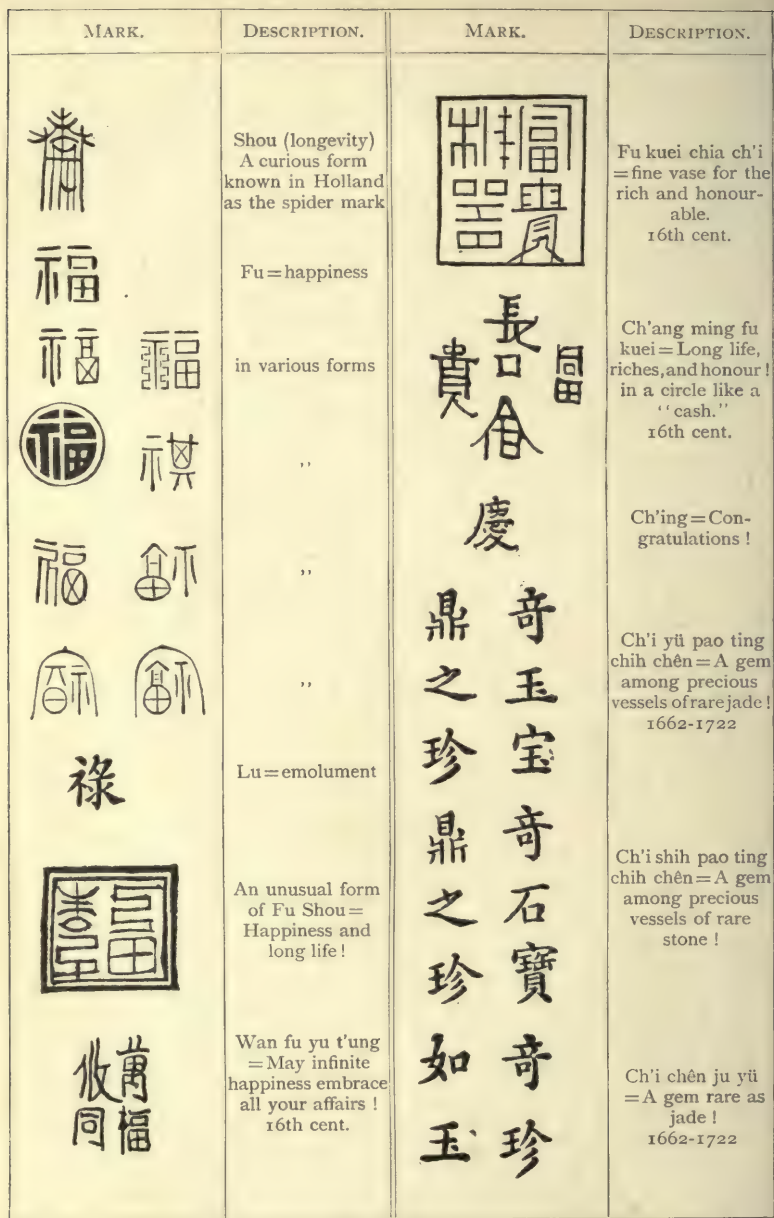 MARK.
DESCRIPTION.
MARK.
DESCRIPTION.
Shou (longevity)
A curious form
known in Holland
as the spider mark
福
Fu=happiness
福 福
in various forms
福
,,
福
,,
,,
祿
Lu=emolument
An unusual form
of Fu Shou=
Happiness and
long life!
萬福
攸同
Wan fu yu t'ung
=May infinite
happiness embrace
all your affairs!
16th cent.
富貴
佳器
Fu kuei chia ch'i
=fine vase for the
rich and honour-
able.
16th cent.
長命富貴
Ch'ang ming fu
kuei=Long life,
riches, and honour!
in a circle like a
"cash."
16th cent.
慶
Ch'ing=Con-
gratulations!
奇玉宝
鼎之珍
Ch'i yü pao ting
chih chên=A gem
among precious
vessels of rare jade!
1662-1722
奇石寶
鼎之珍
Ch'i shih pao ting
chih chên=A gem
among precious
vessels of rare
stone!
奇珍
如玉
Ch'i chên ju yü
=A gem rare as
jade!
1662-1722